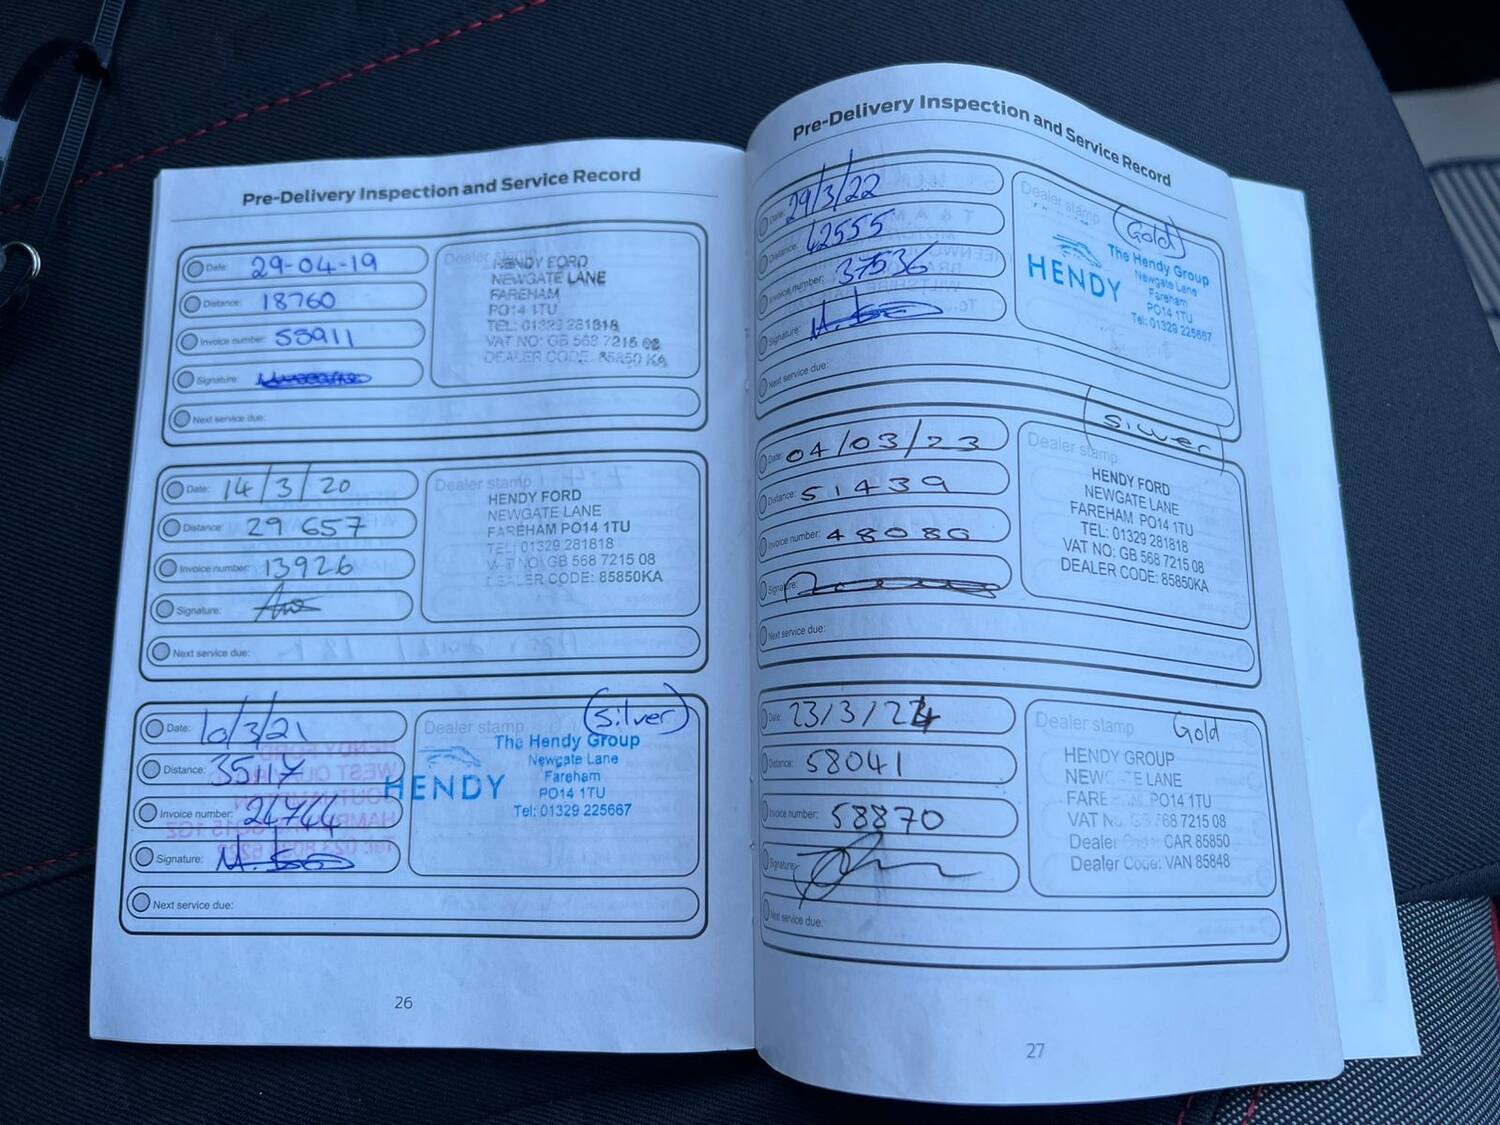 Pre-Delivery Inspection and Service Record
Date: 29-04-19
Distance: 18760
Invoice number: 55911
Signature:
Next service due:
Dealer stamp
HENDY FORD
NEWGATE LANE
FAREHAM
PO14 1TU
TEL: 01329 281818
VAT NO: GB 568 7215 08
DEALER CODE: 85850 KA
Date: 14/3/20
Distance: 29657
Invoice number: 13926
Signature:
Next service due:
Dealer stamp
HENDY FORD
NEWGATE LANE
FAREHAM PO14 1TU
TEL: 01329 281818
VAT NO: GB 568 7215 08
DEALER CODE: 85850KA
Date: 10/3/21
Distance: 35117
Invoice number: 24744
Signature:
Next service due:
Dealer stamp
(Silver)
HENDY
The Hendy Group
Newgate Lane
Fareham
PO14 1TU
Tel: 01329 225667
26
Pre-Delivery Inspection and Service Record
Date: 29/3/22
Distance: 42555
Invoice number: 37536
Signature:
Next service due:
Dealer stamp
(Gold)
HENDY
The Hendy Group
Newgate Lane
Fareham
PO14 1TU
Tel: 01329 225667
(Silver)
Date: 04/03/23
Distance: 51439
Invoice number: 48080
Signature:
Next service due:
Dealer stamp
HENDY FORD
NEWGATE LANE
FAREHAM PO14 1TU
TEL: 01329 281818
VAT NO: GB 568 7215 08
DEALER CODE: 85850KA
Date: 23/3/24
Distance: 58041
Invoice number: 58870
Signature:
Next service due:
Dealer stamp
Gold
HENDY GROUP
NEWGATE LANE
FAREHAM PO14 1TU
VAT No. GB 568 7215 08
Dealer Code: CAR 85850
Dealer Code: VAN 85848
27